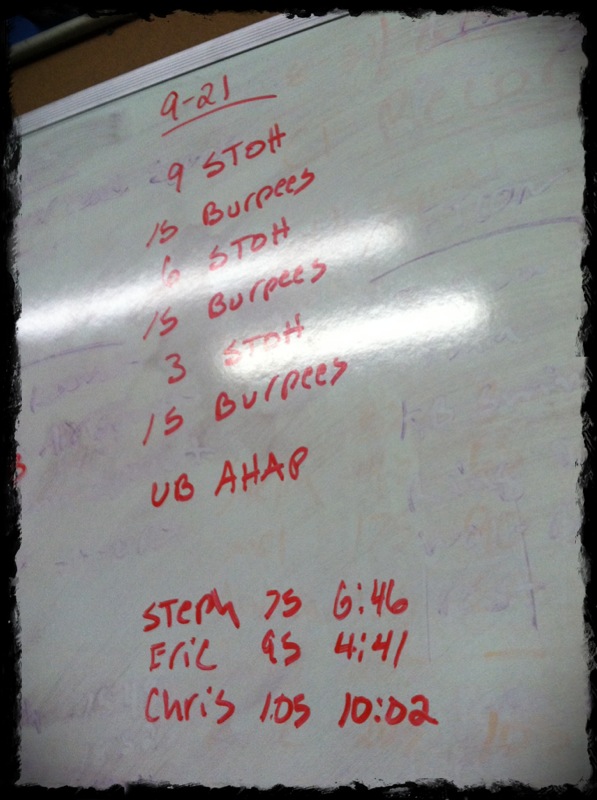 9-21
9 STOH
15 Burpees
6 STOH
15 Burpees
3 STOH
15 Burpees
UB AHAP
Steph 75 6:46
Eric 95 4:41
Chris 105 10:02